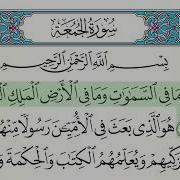 سُورَةُ الْجُمُعَةِ
بِسْمِ ٱللَّهِ ٱلرَّحْمَٰنِ ٱلرَّحِيمِ
مَا فِي ٱلسَّمَٰوَٰتِ وَمَا فِي ٱلْأَرْضِ ٱلْمَلِكِ
هُوَ ٱلَّذِي بَعَثَ فِي ٱلْأُمِّيِّـۧنَ رَسُولًا مِّنْهُ
كِّيهِمْ وَيُعَلِّمُهُمُ ٱلْكِتَٰبَ وَٱلْحِكْمَةَ وَ